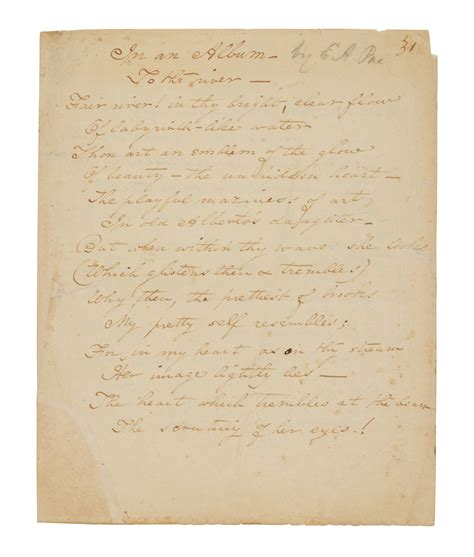 In an Album — by E. A. Poe 31
To the river —
Fair river! in thy bright, clear flow
Of labyrinth-like water
Thou art an emblem of the glow
Of beauty — the unhidden heart —
The playful maziness of art
In old Alberto's daughter —
But when within thy wave she looks
(Which glistens then & trembles)
Why then, the prettiest of brooks
My pretty self resembles;
For in my heart as on thy stream
Her image lightly lies —
The heart which trembles at the beam
The scrutiny of her eyes!!